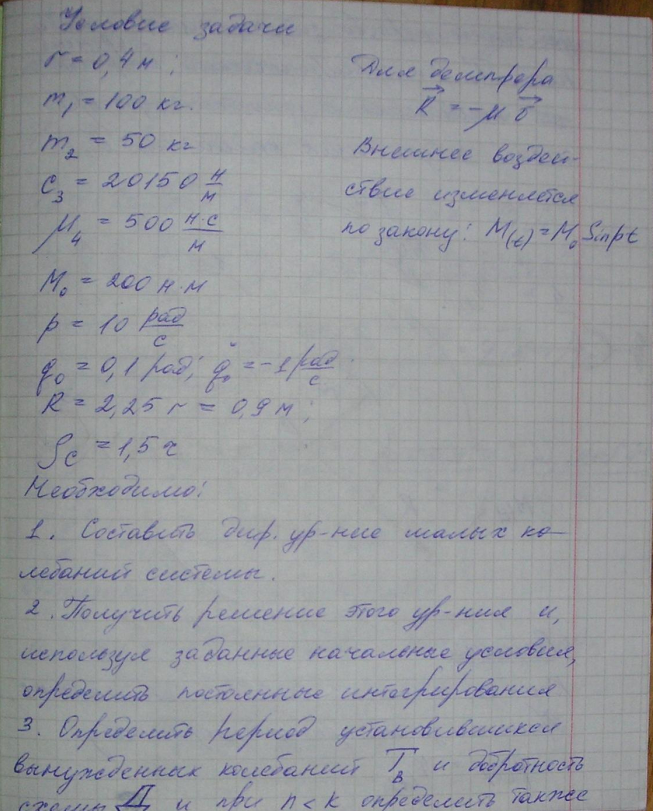 Условие задачи
r = 0,4 м;
m₁ = 100 кг.
m₂ = 50 кг
C₃ = 20150 н/м
μ₄ = 500 н·с/м
M₀ = 200 н·м
p = 10 рад/с
q₀ = 0,1 рад; q̇₀ = -1 рад/с.
R = 2,25 r = 0,9 м;
ρc = 1,5 r
Для демпфера
R⃗ = -μ v⃗
Внешнее воздей-
ствие изменяется
по закону: M(t) = M₀ Sin pt
Необходимо:
1. Составить диф. ур-ние малых ко-
лебаний системы.
2. Получить решение этого ур-ния и,
используя заданные начальные условия,
определить постоянные интегрирования
3. Определить период установившихся
вынужденных колебаний Tв и добротность
Д и при n < k определить также